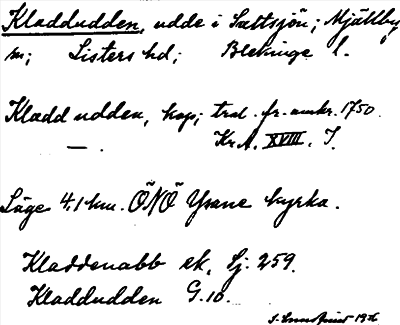 Kladdudden, udde i Sættsjön; Mjällby
sn; Listers hd; Blekinge l.
Kladdudden, kop; trol. fr. omkr. 1750.
— . Kr. A. XVIII. I.
Läge 4.1 km. ÖNÖ Ysane kyrka.
Kladdenabb ek. Sj. 259.
Kladdudden G.10.